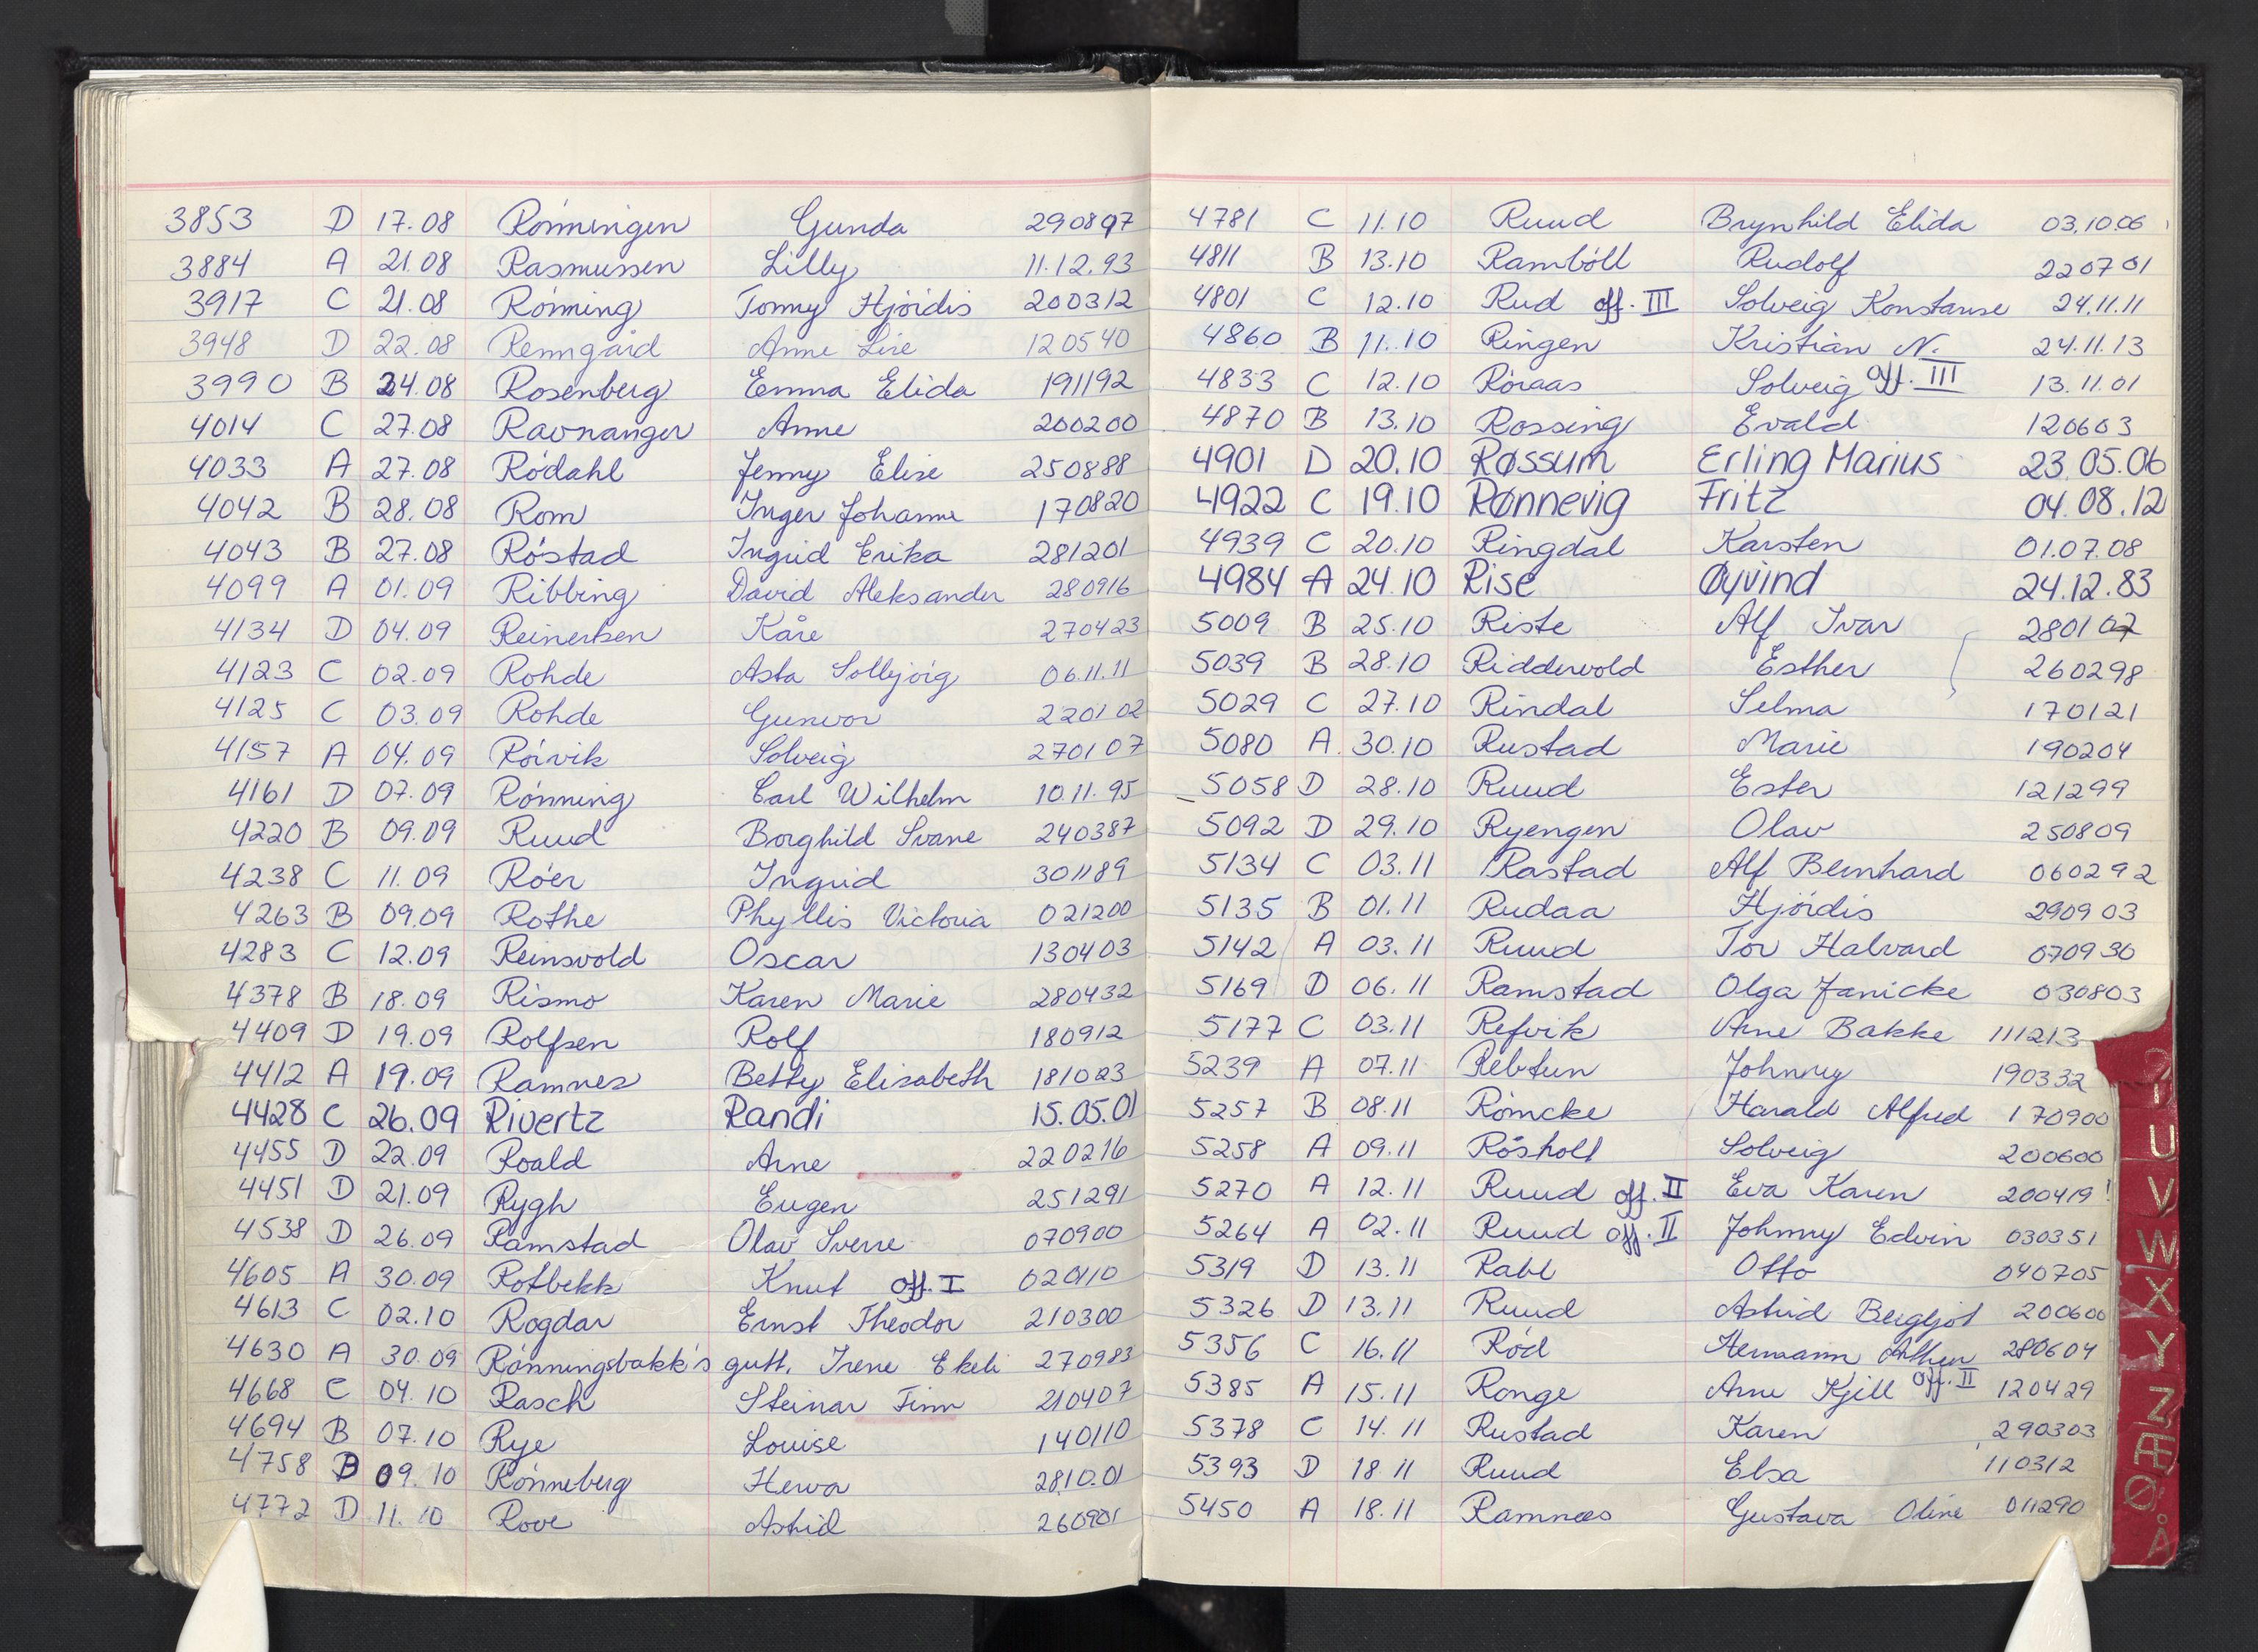 3853 D 17.08 Rönningen Gunda 290897
3884 A 21.08 Rasmussen Lilly 11.12.93
3917 C 21.08 Rönning Tonny Hjördis 200312
3948 D 22.08 Renngård Anne Lise 120540
3990 B 24.08 Rosenberg Emma Elida 191192
4014 C 27.08 Ravnanger Anne 200200
4033 A 27.08 Rödahl Jenny Elise 250888
4042 B 28.08 Rom Inger Johanne 170820
4043 B 27.08 Röstad Ingrid Erika 281201
4099 A 01.09 Ribbing David Aleksander 280916
4134 D 04.09 Reinertsen Kåre 270423
4123 C 02.09 Rohde Asta Solbjörg 06.11.11
4125 C 03.09 Rohde Gunvor 220102
4157 A 04.09 Rörvik Solveig 270107
4161 D 07.09 Rönning Carl Wilhelm 10.11.95
4220 B 09.09 Ruud Borghild Svane 240387
4238 C 11.09 Röer Ingrid 301189
4263 B 09.09 Rothe Phyllis Victoria 021200
4283 C 12.09 Reinsvold Oscar 130403
4378 B 18.09 Rismo Karen Marie 280432
4409 D 19.09 Rolfsen Rolf 180912
4412 A 19.09 Ramnes Betty Elisabeth 181023
4428 C 26.09 Rivertz Randi 15.05.01
4455 D 22.09 Roald Arne 220216
4451 D 21.09 Rygh Eugen 251291
4538 D 26.09 Ramstad Olav Sverre 070900
4605 A 30.09 Rotbekk Knut off. I
4613 C 02.10 Rogdar Ernst Theodor 210300
4630 A 30.09 Rönningsbakk's gutt, Irene Ekeli 270983
4668 C 04.10 Rasch Steinar Finn 210407
4694 B 07.10 Rye Louise 140110
4758 B 09.10 Rönneberg Herva 281001
4772 D 11.10 Rove Astrid 260901
4781 C 11.10 Ruud Brynhild Elida 03.10.06
4811 B 13.10 Ramböll Rudolf 220701
4801 C 12.10 Rud off. III Solveig Konstanse 24.11.11
4860 B 11.10 Ringen Kristian N. 24.11.13
4833 C 12.10 Röraas Solveig off. III 13.11.01
4870 B 13.10 Rossing Evald 120603
4901 D 20.10 Røssum Erling Marius 23.05.06
4922 C 19.10 Rønnevig Fritz 04.08.12
4939 C 20.10 Ringdal Karsten 01.07.08
4984 A 24.10 Rise Øyvind 24.12.83
5009 B 25.10 Riste Alf Ivar 280107
5039 B 28.10 Riddervold Esther 260298
5029 C 27.10 Rindal Selma 170121
5080 A. 30.10 Rustad Marie 190204
5058 D 28.10 Ruud Ester 121299
5092 D 29.10 Ryengen Olav 250809
5134 C 03.11 Rastad Alf Bernhard 060292
5135 B 01.11 Rudaa Hjördis 290903
5142 A 03.11 Ruud Tor Halvard 070930
5169 D 06.11 Ramstad Olga Janicke 030803
5177 C 03.11 Refvik Arne Bakke 111213
5239 A 07.11 Rebtun Johnny 190332
5257 B 08.11 Römcke Harald Alfred 170900
5258 A 09.11 Rösholt Solveig 200600
5270 A 12.11 Ruud off. II Eva Karen 200419
5264 A 02.11 Ruud off. II Johnny Edvin 030351
5319 D 13.11 Rabl Otto 040705
5326 D 13.11 Ruud Astrid Bergljot 200600
5356 C 16.11 Röd Hermann 280604
5385 A 15.11 Ronge Arne Kjell off. II 120429
5378 C 14.11 Rustad Karen 290303
5393 D 18.11 Ruud Elsa 110312
5450 A 18.11 Ramnæs Gustava Oline 011290
U
V
W
X
Y
Z
Æ
Ø
Å